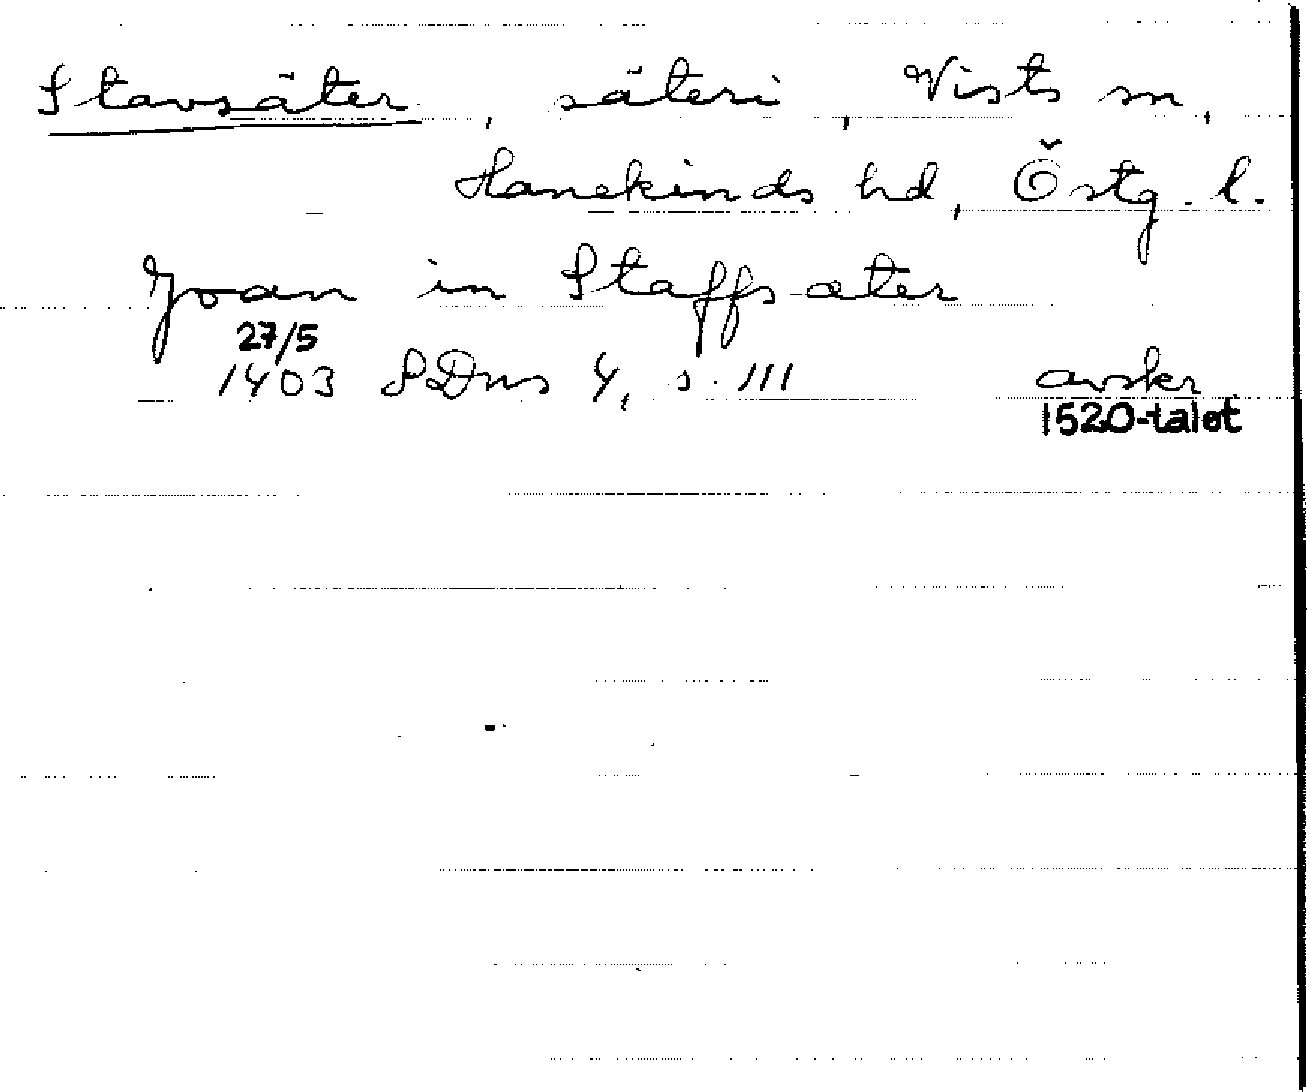 Stavsäter, säteri, Vists sn,
Hanekinds hd, Östg. l.
Joan in Staffsater
27/5
1403 SDns 4, s. 111 avskr
1520-talet